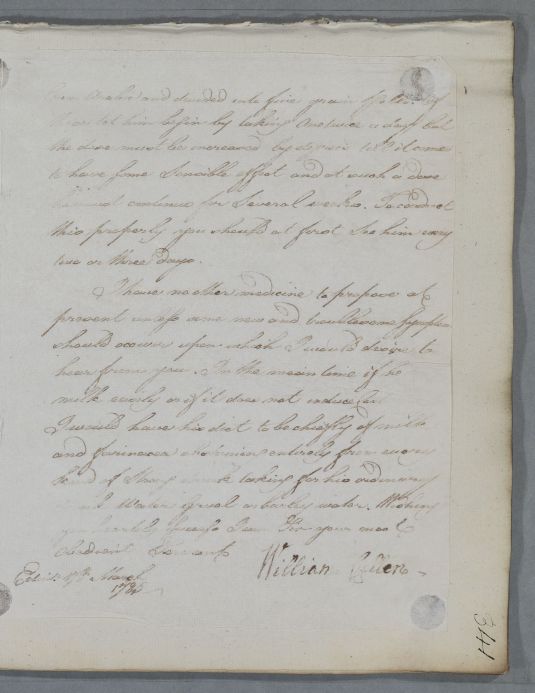 and divided into five grain pills. Of
these let him begin by taking one twice a day but
the dose must be increased by degrees till it come
to have some sensible effect and at such a dose
continue for several weeks. To conduct
this properly you should at first see him every
two or three days.
I have no other medicine to propose at
present unless some new and troublesome symptom
should occur upon which I would desire to
hear from you. In the mean time if he
milk easily or if it does not induce
I would have his diet to be chiefly of milk
and farinacea abstaining entirely from every
kind of strong drink taking for his ordinary
drink Water gruel or barley water. Wishing
you heartily success I am Sir your most
Obedient Servant
William Cullen
Edin. 17th March
1785
341